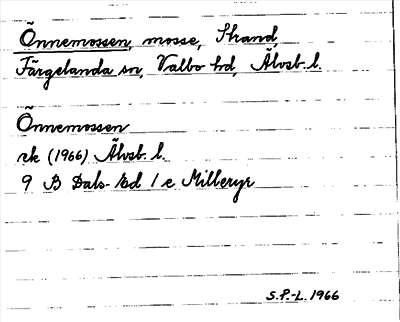 Önnemossen, mosse, Strand,
Färgelanda sn, Valbo hd, Älvsb. l.
Önnemossen
rk (1966) Älvsb. l.
9 B Dals-Ed 1 e Milleryr
S.P.-L. 1966